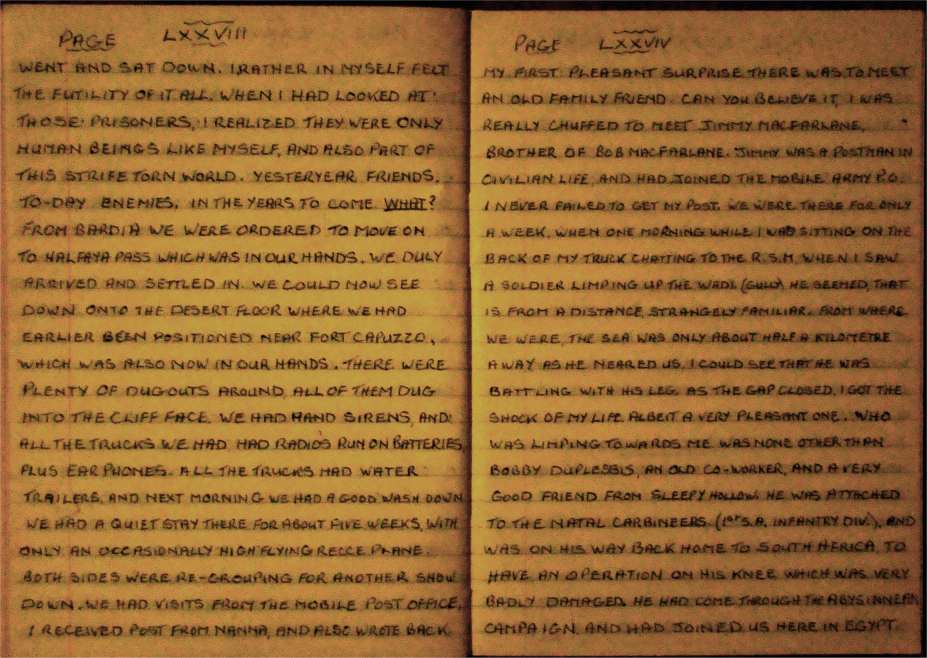 PAGE LXXVIII
WENT AND SAT DOWN. I RATHER IN MYSELF FELT
THE FUTILITY OF IT ALL. WHEN I HAD LOOKED AT
THOSE PRISONERS, I REALIZED THEY WERE ONLY
HUMAN BEINGS LIKE MYSELF, AND ALSO PART OF
THIS STRIFE TORN WORLD. YESTERYEAR FRIENDS.
TO-DAY ENEMIES. IN THE YEARS TO COME WHAT?
FROM BARDIA WE WERE ORDERED TO MOVE ON
TO HALFAYA PASS WHICH WAS IN OUR HANDS. WE DULY
ARRIVED AND SETTLED IN. WE COULD NOW SEE
DOWN ONTO THE DESERT FLOOR WHERE WE HAD
EARLIER BEEN POSITIONED NEAR FORT CAPUZZO,
WHICH WAS ALSO NOW IN OUR HANDS. THERE WERE
PLENTY OF DUGOUTS AROUND, ALL OF THEM DUG
INTO THE CLIFF FACE. WE HAD HAND SIRENS, AND
ALL THE TRUCKS WE HAD HAD RADIOS RUN ON BATTERIES,
PLUS EAR PHONES. ALL THE TRUCKS HAD WATER
TRAILERS, AND NEXT MORNING WE HAD A GOOD WASH DOWN
WE HAD A QUIET STAY THERE FOR ABOUT FIVE WEEKS, WITH
ONLY AN OCCASIONALLY HIGH FLYING RECCE PLANE.
BOTH SIDES WERE RE-GROUPING FOR ANOTHER SHOW
DOWN. WE HAD VISITS FROM THE MOBILE POST OFFICE,
I RECEIVED POST FROM NANNA, AND ALSO WROTE BACK
PAGE LXXVIV
MY FIRST PLEASANT SURPRISE THERE WAS TO MEET
AN OLD FAMILY FRIEND. CAN YOU BELIEVE IT, I WAS
REALLY CHUFFED TO MEET JIMMY MACFARLANE,
BROTHER OF BOB MACFARLANE. JIMMY WAS A POSTMAN IN
CIVILIAN LIFE, AND HAD JOINED THE MOBILE ARMY P.O.
I NEVER FAILED TO GET MY POST. WE WERE THERE FOR ONLY
A WEEK, WHEN ONE MORNING WHILE I WAS SITTING ON THE
BACK OF MY TRUCK CHATTING TO THE R.S.M. WHEN I SAW
A SOLDIER LIMPING UP THE WADI. (GULLY) HE SEEMED, THAT
IS FROM A DISTANCE, STRANGELY FAMILIAR. FROM WHERE
WE WERE, THE SEA WAS ONLY ABOUT HALF A KILOMETRE
AWAY AS HE NEARED US, I COULD SEE THAT HE WAS
BATTLING WITH HIS LEG. AS THE GAP CLOSED, I GOT THE
SHOCK OF MY LIFE. ALBEIT A VERY PLEASANT ONE. WHO
WAS LIMPING TOWARDS ME WAS NONE OTHER THAN
BOBBY DUPLESSIS, AN OLD CO-WORKER, AND A VERY
GOOD FRIEND FROM SLEEPY HOLLOW. HE WAS ATTACHED
TO THE NATAL CARBINEERS. (1ST S.A. INFANTRY DIV.), AND
WAS ON HIS WAY BACK HOME TO SOUTH AFRICA, TO
HAVE AN OPERATION ON HIS KNEE WHICH WAS VERY
BADLY DAMAGED. HE HAD COME THROUGH THE ABYSINNEAN
CAMPAIGN. AND HAD JOINED US HERE IN EGYPT.